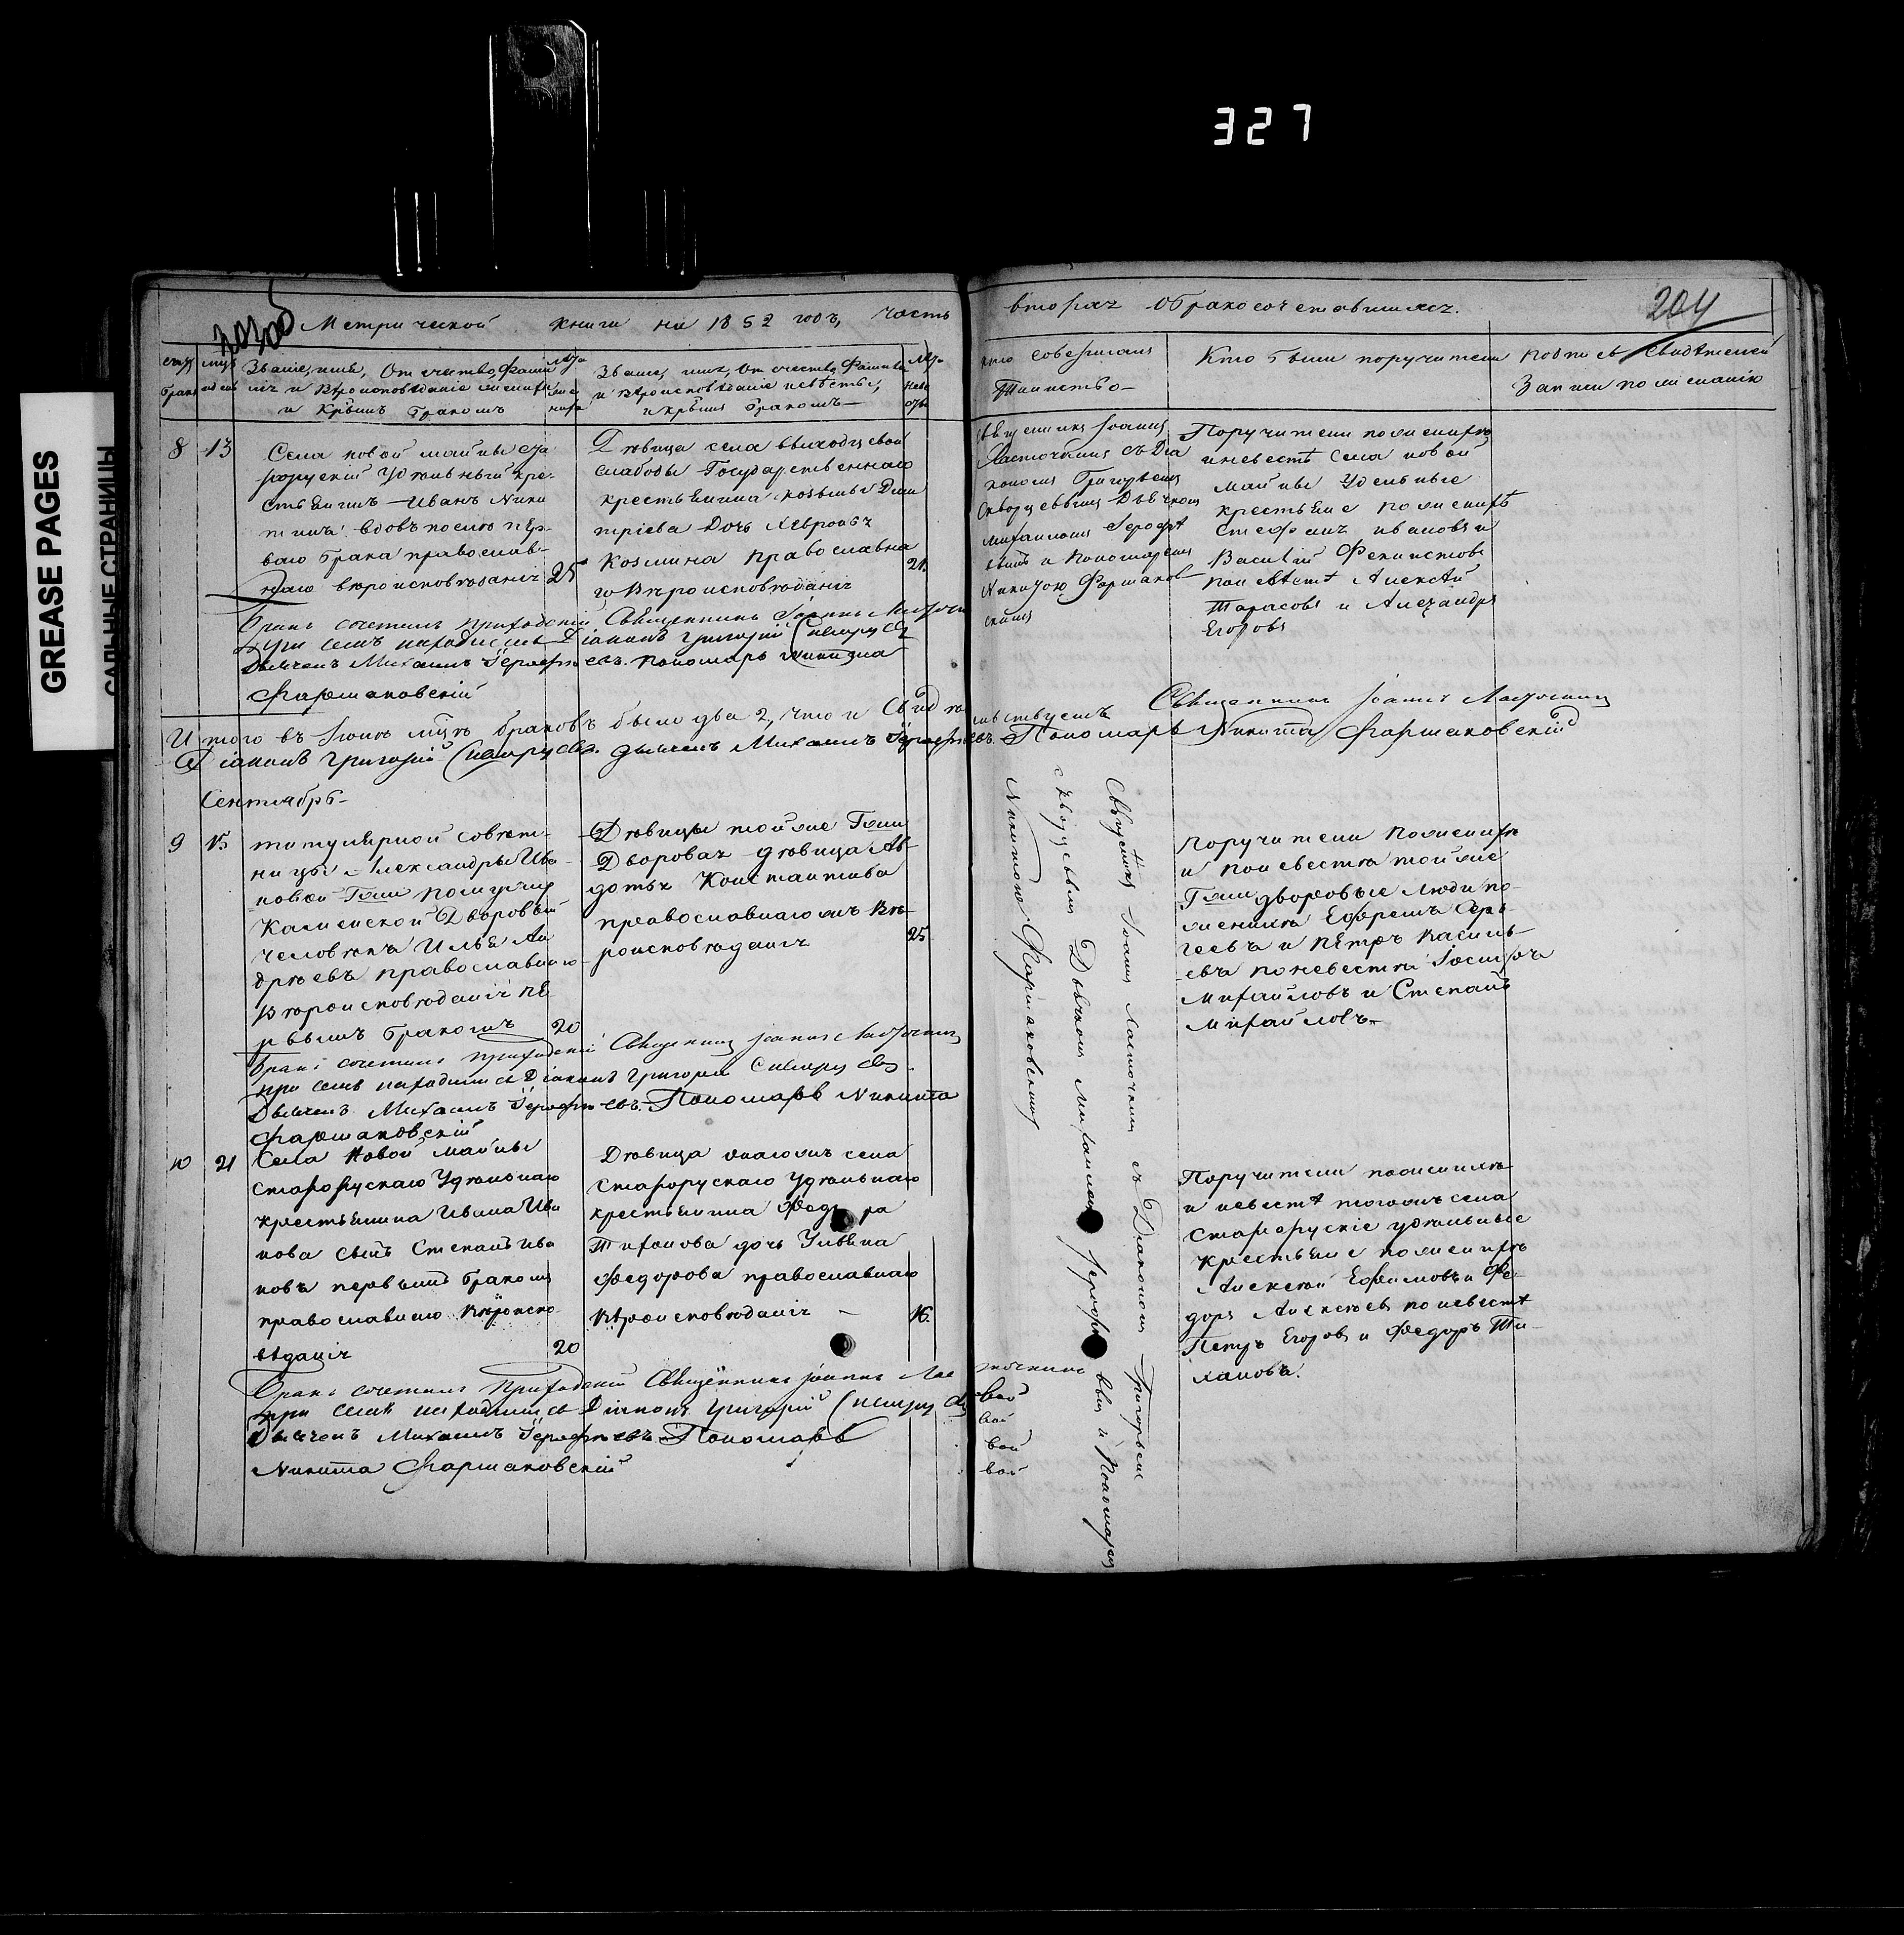 327
GREASE PAGES
САЛЬНЫЕ СТРАНИЦЫ
Метрической книги на 1852 годъ, часть вторая О бракосочетавшихся.
204
Званіе, имя, Отчество, Фамилія и Вѣроисповѣданіе жениха и крѣимъ бракомъ
Званіе, имя, Отчество, Фамилія и вѣроисповѣданіе невѣсты, и крѣимъ бракомъ
кто совершалъ
Таинство
Кто были поручители
Подпись свидѣтелей
Записи по желанію
8 13
Села новой майны ста
рорускій Удѣльный кре-
стьянинъ Иванъ Ники
тинъ вдовъ послѣ пер-
ваго брака православ-
наго вѣроисповѣданія 25
Дѣвица села
слабоды Государственнаго
крестьянина козьмы Дми
тріева Дочь Хавронья
Козмина православна
го Вѣроисповѣданія 21.
Священникъ Іоаннъ
Ласточкинъ съ Діа
кономъ Григорьемъ
Скворцовымъ Дьячкомъ
Михаиломъ Ѳерофѣ
вымъ и Пономаремъ
Никитою Фармаков
скимъ
Поручители по женихѣ
и невестѣ Села новой
майны Удельные
крестьяне по женихѣ
Стефанъ ивановъ и
Василій Феклистовъ
по невѣстѣ Алексѣй
Тарасовъ и Александръ
Егоровъ
Бракъ сочеталъ приходскій Священникъ Іоаннъ Ласточкинъ
При семъ находились Діаконъ Григорій Скворцовъ
Дьячекъ Михаилъ Ѳерофѣевъ. Пономарь Никита
Фармаковскій
Итого въ Іюлѣ мцѣ браковъ было два 2, что и Свидѣтельствуемъ
Священникъ Іоаннъ Ласточкинъ
Діаконъ Григорій Скворцовъ. Дьячекъ Михаилъ Ѳерофѣевъ. Пономарь Никита Фармаковскій
Сентябрь
9 15
титулярной совѣт-
ницы Александры Ива
новой Гжи помѣщицы
Каменской Дворовый
человѣкъ Илья Ан
дрѣевъ православнаго
Вѣроисповѣданія пе
рвымъ бракомъ 20
Дѣвицы той же Гжи
Дворовая дѣвица Ав
дотья Константинова
православнаго жъ Вѣ-
роисповѣданія 25
Священникъ Іоаннъ Ласточкинъ съ Діакономъ Григорьемъ
Скворцовымъ Дьячкомъ Михаиломъ Ѳерофѣевымъ и Пономаремъ
Никитою Фармаковскимъ
Поручители по женихѣ
и по невестѣ той же
Гжи дворовые люди по
женихѣ Ефремъ Сер-
геевъ и Петръ Василь-
евъ по невестѣ Іосифъ
Михайловъ и Степанъ
Михайловъ
Бракъ сочеталъ приходскій Священникъ Іоаннъ Ласточкинъ
при семъ находились Діаконъ Григорій Скворцовъ.
Дьячекъ Михаилъ Ѳерофѣевъ. Пономарь Никита
Фармаковскій
10 21
Села Новой майны
старорускаго Удѣльнаго
крестьянина Ивана Ива
нова сынъ Степанъ ива
новъ первымъ бракомъ
православнаго Вѣроиспо-
вѣданія 20
Дѣвица онаго жъ села
старорускаго удѣльнаго
крестьянина Федора
Тиханова дочь Ульяна
Федорова православнаго
Вѣроисповѣданія 16.
Поручители по женихѣ
и невестѣ того жъ села
старорускіе удѣльные
крестьяне по женихѣ
Алексѣй Ефимовъ и Фе-
доръ Алексѣевъ по невестѣ
Петръ Егоровъ и Федоръ Ти-
хановъ.
Бракъ сочеталъ Приходскій Священникъ Іоаннъ Ласточкинъ
при семъ находились Діаконъ Григорій Скворцовъ
Дьячекъ Михаилъ Ѳерофѣевъ. Пономарь
Никита Фармаковскій